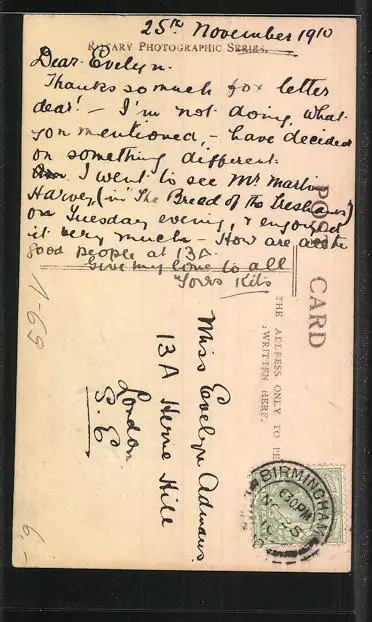 25th November 1910
ROTARY PHOTOGRAPHIC SERIES.
Dear Evelyn.
Thanks so much for letter
dear! - I'm not doing what
you mentioned, - have decided
on something different.
I went to see Mr Martin
Harvey (in "The Breed of the Treshams")
on Tuesday evening, & enjoyed
it very much - How are all the
good people at 13A.
Give my love to all
Yours Kits
POST CARD
THE ADDRESS ONLY TO BE
WRITTEN HERE.
Miss Evelyn Admans
13A Herne Hill
London
S.E
1-69
6,-
BIRMINGHAM
630PM
NO 25
10